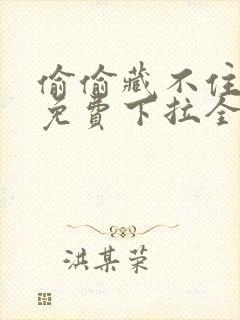 偷偷藏不住
免費下拉全
洪某荣